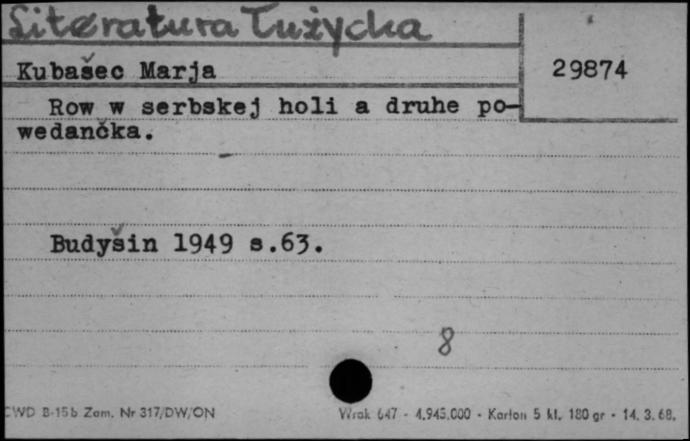 Literatura Łużycka
Kubašec Marja
29874
Row w serbskej holi a druhe po-
wedančka.
Budyšin 1949 s.63.
8
CWD B-15b Zam. Nr 317/DW/ON
Wrak 647 - 4.945.000 - Karton 5 kl. 180 gr - 14. 3. 68.